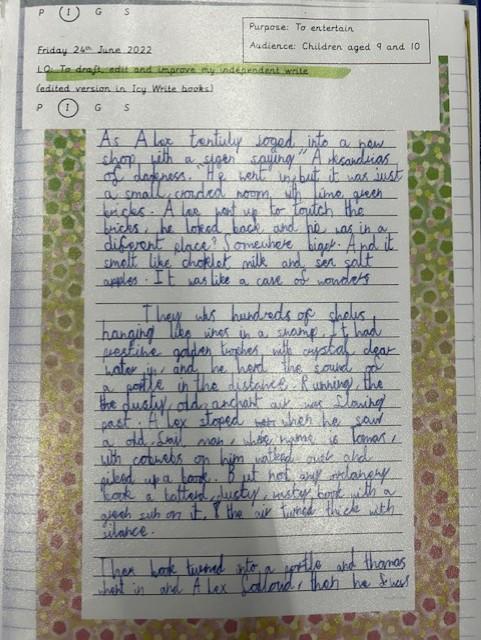 P I G S
Purpose: To entertain
Audience: Children aged 9 and 10
Friday 24th June 2022
LO: To draft, edit and improve my independent write
(edited version in Icy Write books)
P I G S
As Alex tentuly joged into a new
shop with a sigen saying "Arksandrias
of darkness." He went in, but it was just
a small, crowded room, with lime green
bricks. Alex went up to toutch the
bricks, he looked back and he was in a
diferent place? Somewhere biger. And it
smelt like choklet milk and sea salt
apples. It was like a case of wonders
They was hundreds of shelvs
hanging like vines in a swamp. It had
prestine golden trophes with crystal clear
water in, and he herd the sound of
a portle in the distance. Running, the
the dusty, old, anchant air was flowing
past. Alex stoped when he saw
a old, frail man, whos name is Tomas,
with cobwebs on him walked over and
piked up a book. But not any ordanery
book a batterd, dusty, rusty book with a
on it, the air turned thick with
silance.
Then book turned into a portle and thomas
whent in and Alex folloud, then he